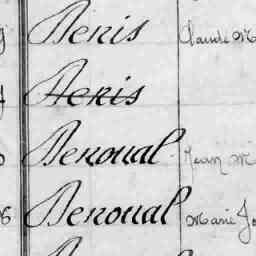 Denis Claude M
Denis
Denoual Jean M
Denoual Marie Jo